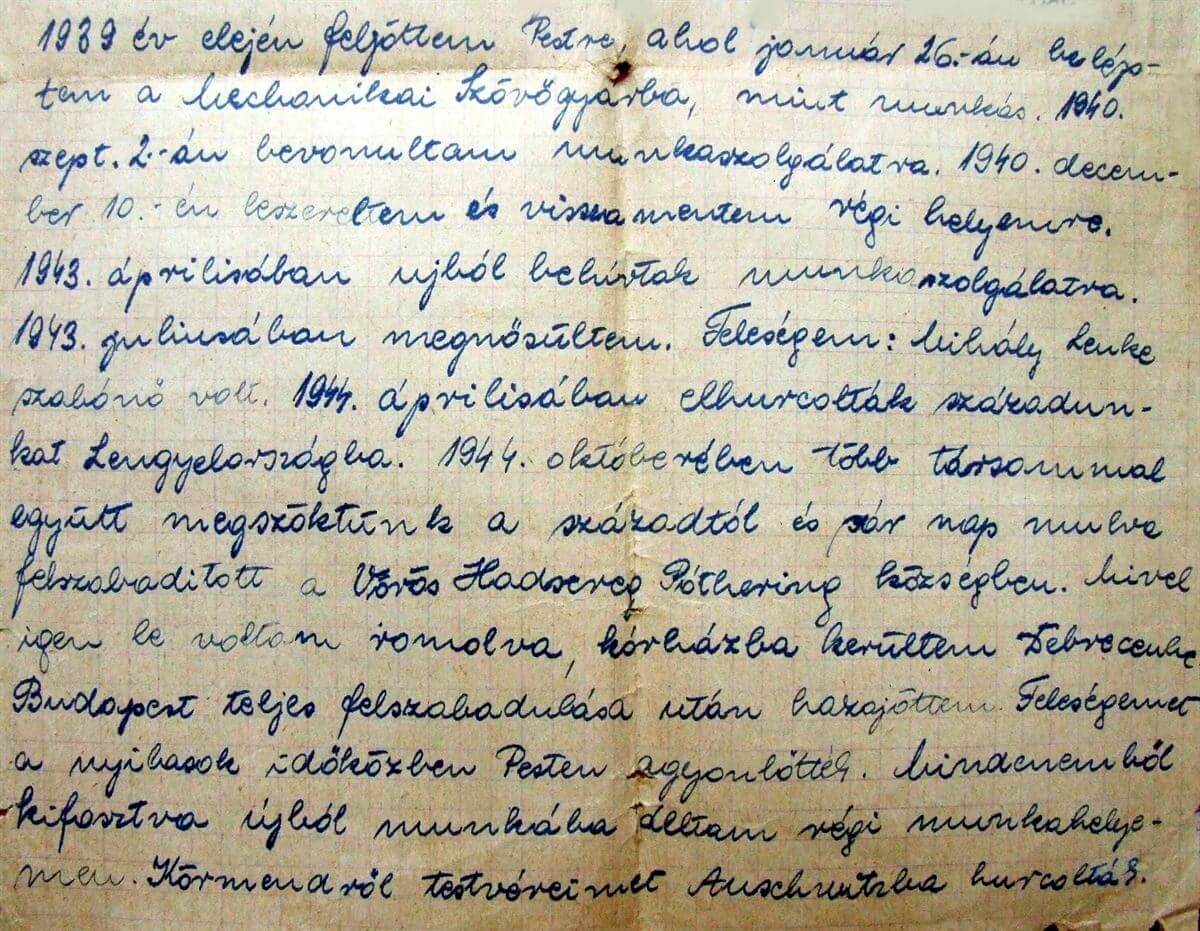 1939 év elején feljöttem Pestre, ahol január 26.-án belép-
tem a Mechanikai Szövőgyárba, mint munkás. 1940.
szept. 2.-án bevonultam munkaszolgálatra. 1940. decem-
ber 10.-én leszereltem és visszamentem régi helyemre.
1943. áprilisában ujból behívtak munkaszolgálatra.
1943. juliusában megnősültem. Feleségem: Mihály Lenke
szabónő volt. 1944. áprilisában elhurcolták századun-
kat Lengyelországba. 1944. októberében több társammal
együtt megszöktünk a századtól és pár nap mulva
felszabaditott a Vörös Hadsereg Póthering községben. Mivel
igen le voltam romolva, kórházba kerültem Debrecenbe.
Budapest teljes felszabadulása után hazajöttem. Feleségemet
a nyilasok időközben Pesten agyonlőtték. Mindenemből
kifosztva újból munkába álltam régi munkahelye-
men. Körmendről testvéreimet Auschwitzba hurcolták.